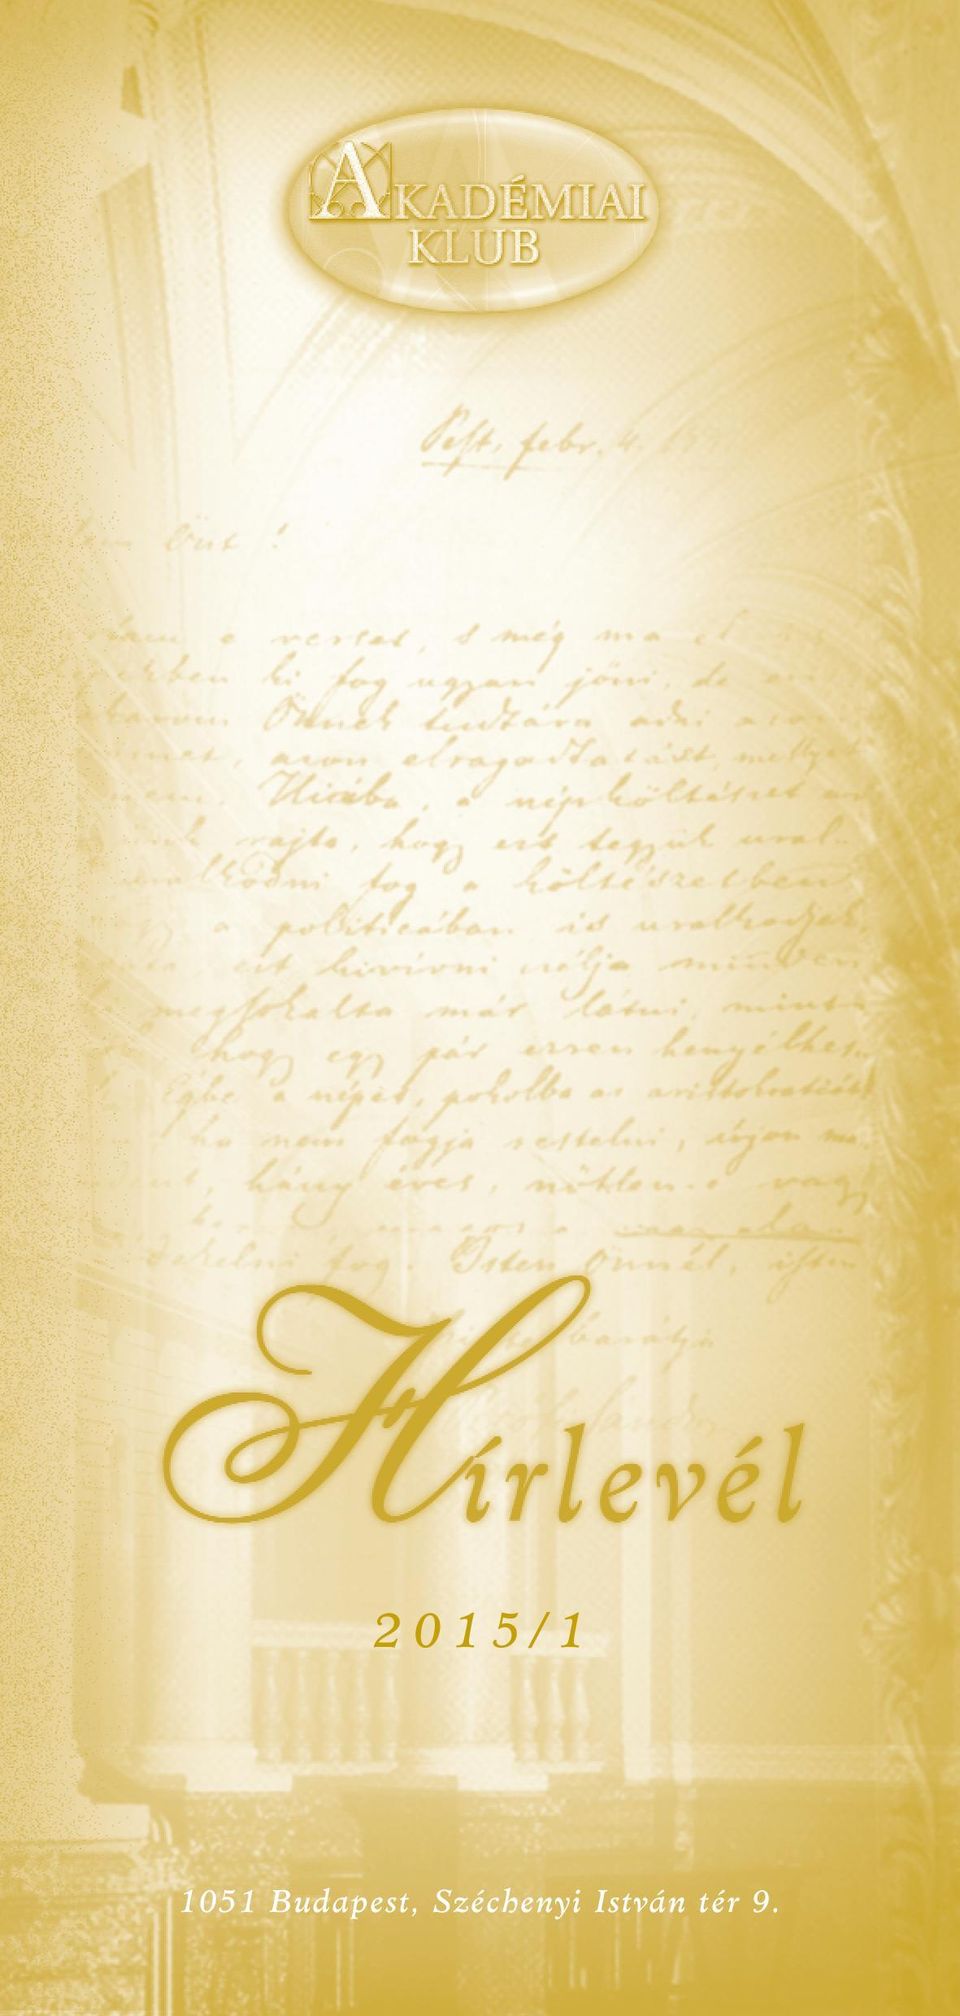 AKADÉMIAI
KLUB
Pest, febr. 4.
Önt!
e verset, s még ma
ki fog ugyan jőni, de
Önnek tudtára adni
azon elragadtatást, mellyet
a népköltészet
rajta, hogy ezt tegyük
fog a költészetben
a politicában is uralkodjék
ezt kivívni célja minden
megsokalta már látni, mint
hogy egy pár ezren henyélhes
Égbe a népet, pokolba az aristokratiát
ha nem fogja restelni, írjon
hány éves, nőtlen-e vagy
fog. Isten Önnél,
barátja
Hírlevél
2015/1
1051 Budapest, Széchenyi István tér 9.